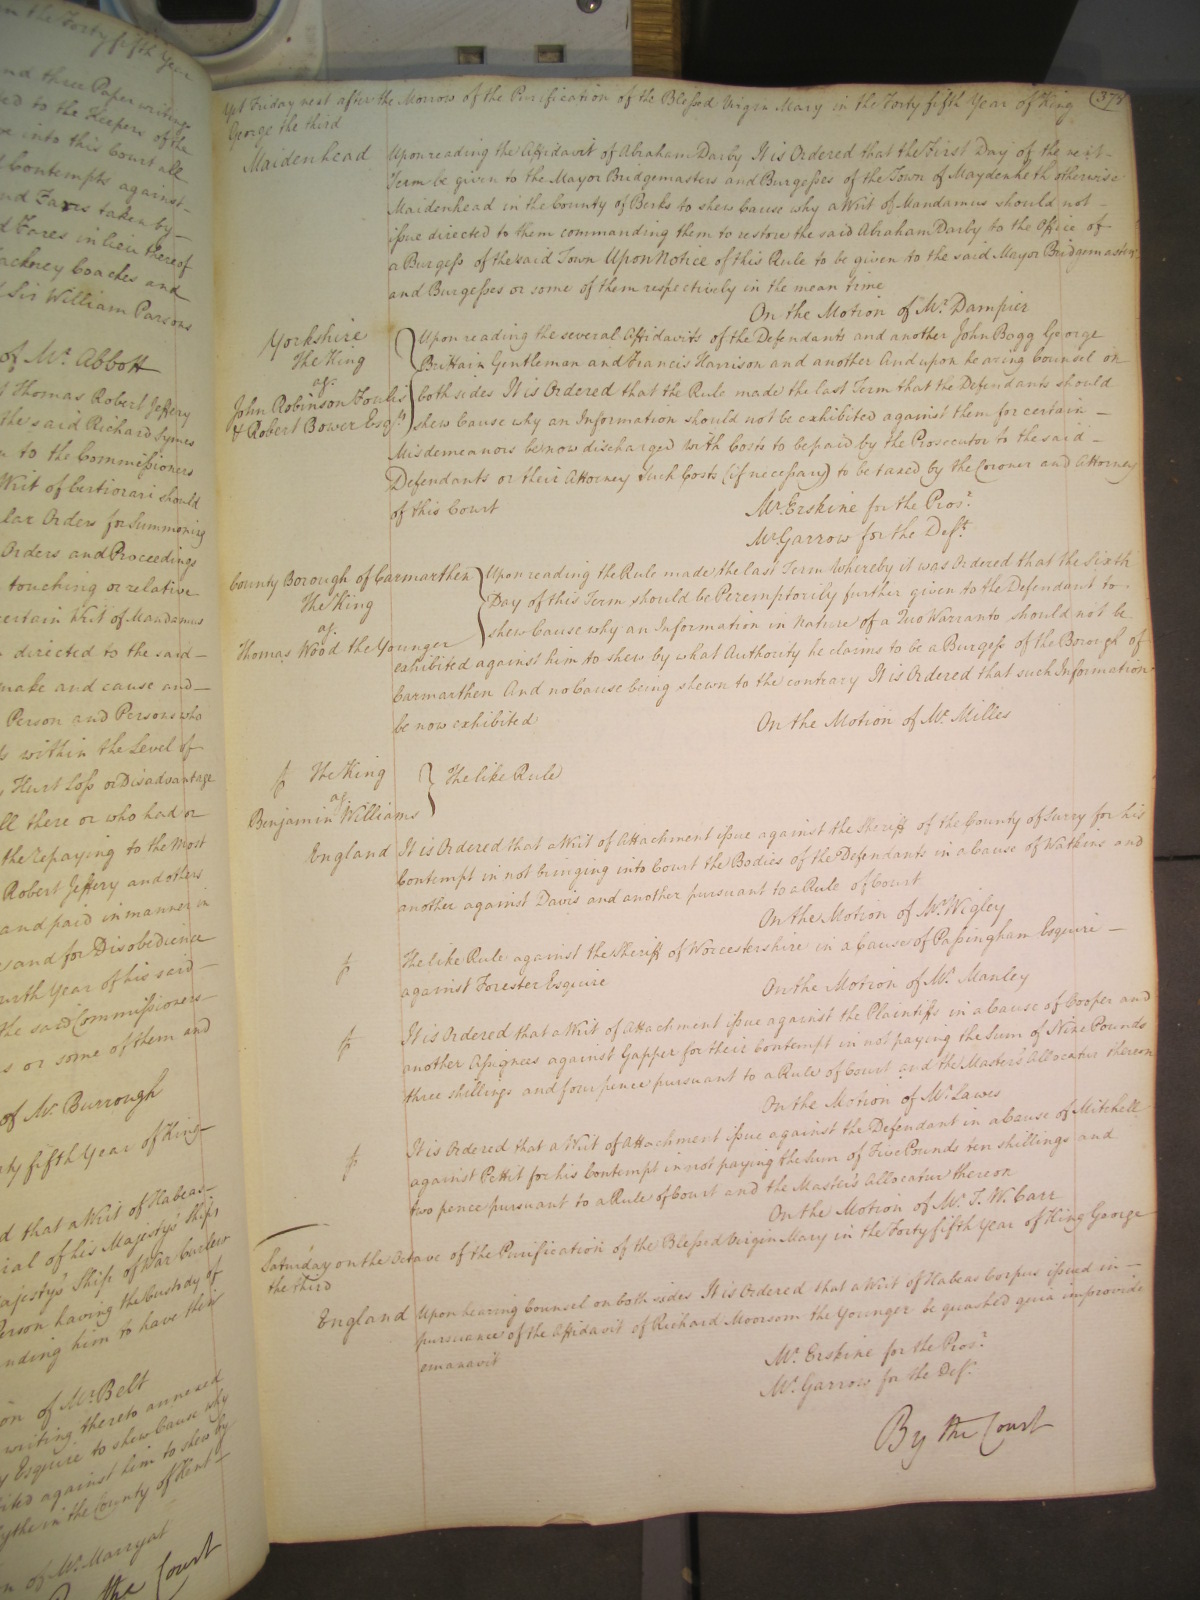 in the Forty fifth Year
and three Paper writings
to the Keepers of the
into this Court all
Contempts against
and Fares taken by
Fares in lieu thereof
Hackney Coaches and
Sir William Parsons
of Mr. Abbott
Thomas Robert Jeffery
the said Richard Symes
to the Commissioners
Writ of Certiorari should
Orders for Summoning
Orders and Proceedings
touching or relative
certain Writ of Mandamus
directed to the said
make and cause and
Person and Persons who
within the Level of
Hurt Loss or Disadvantage
all there or who had or
the repaying to the most
Robert Jeffery and others
and paid in manner in
and for Disobedience
Year of his said
the said Commissioners
s or some of them and
of Mr. Burrough
fifth Year of King
d that a Writ of Habeas
of his Majesty's Ships
Majesty's Ship of War Curlew
Person having the Custody of
him to have their
on of Mr. Belt
writing thereto annexed
Esquire to shew Cause why
against him to shew by
in the County of Kent
of Mr. Marryat
the Court
Yet Friday next after the Morrow of the Purification of the Blessed Virgin Mary in the Forty fifth Year of King
George the third
Maidenhead Upon reading the Affidavit of Abraham Darby It is Ordered that the First Day of the next
Term be given to the Mayor Bridgemasters and Burgesses of the Town of Maydenheth otherwise
Maidenhead in the County of Berks to shew Cause why a Writ of Mandamus should not
issue directed to them commanding them to restore the said Abraham Darby to the Office of
a Burgess of the said Town Upon Notice of this Rule to be given to the said Mayor Bridgemasters
and Burgesses or some of them respectively in the mean time
On the Motion of Mr. Dampier
Yorkshire
The King
agt.
John Robinson Foulis
& Robert Bower Esqrs.
Upon reading the several Affidavits of the Defendants and another John Bogg George
Brittain Gentleman and Francis Harrison and another And upon hearing Counsel on
both sides It is Ordered that the Rule made the last Term that the Defendants should
shew Cause why an Information should not be exhibited against them for certain
Misdemeanors be now discharged with Costs to be paid by the Prosecutor to the said
Defendants or their Attorney such Costs (if necessary) to be taxed by the Coroner and Attorney
of this Court
Mr. Erskine for the Prosr.
Mr. Garrow for the Deft.
County Borough of Carmarthen
The King
agt.
Thomas Wood the Younger
Upon reading the Rule made the last Term Whereby it was Ordered that the Sixth
Day of this Term should be Peremptorily further given to the Defendant to
shew Cause why an Information in Nature of a Quo Warranto should not be
exhibited against him to shew by what Authority he claims to be a Burgess of the Borough of
Carmarthen And no Cause being shewn to the contrary It is Ordered that such Information
be now exhibited
On the Motion of Mr. Milles
The King
agt.
Benjamin Williams
The like Rule
England It is Ordered that a Writ of Attachment issue against the Sheriff of the County of Surry for his
Contempt in not bringing into Court the Bodies of the Defendants in a Cause of Watkins and
another against Davis and another pursuant to a Rule of Court
On the Motion of Mr. Wigley
The like Rule against the Sheriff of Worcestershire in a Cause of Passingham Esquire
against Forester Esquire
On the Motion of Mr. Manley
It is Ordered that a Writ of Attachment issue against the Plaintiffs in a Cause of Cooper and
another Assignees against Gapper for their Contempt in not paying the Sum of Nine Pounds
three shillings and four pence pursuant to a Rule of Court and the Master's Allocatur thereon
On the Motion of Mr. Lawes
It is Ordered that a Writ of Attachment issue against the Defendant in a Cause of Mitchell
against Pettit for his Contempt in not paying the Sum of Five Pounds ten shillings and
two pence pursuant to a Rule of Court and the Master's Allocatur thereon
On the Motion of Mr. T. W. Carr
Saturday on the Octave of the Purification of the Blessed Virgin Mary in the Forty fifth Year of King George
the third
England Upon hearing Counsel on both sides It is Ordered that a Writ of Habeas Corpus issued in
pursuance of the Affidavit of Richard Moorsom the Younger be quashed quia improvide
emanavit
Mr. Erskine for the Prosr.
Mr. Garrow for the Deft.
By the Court